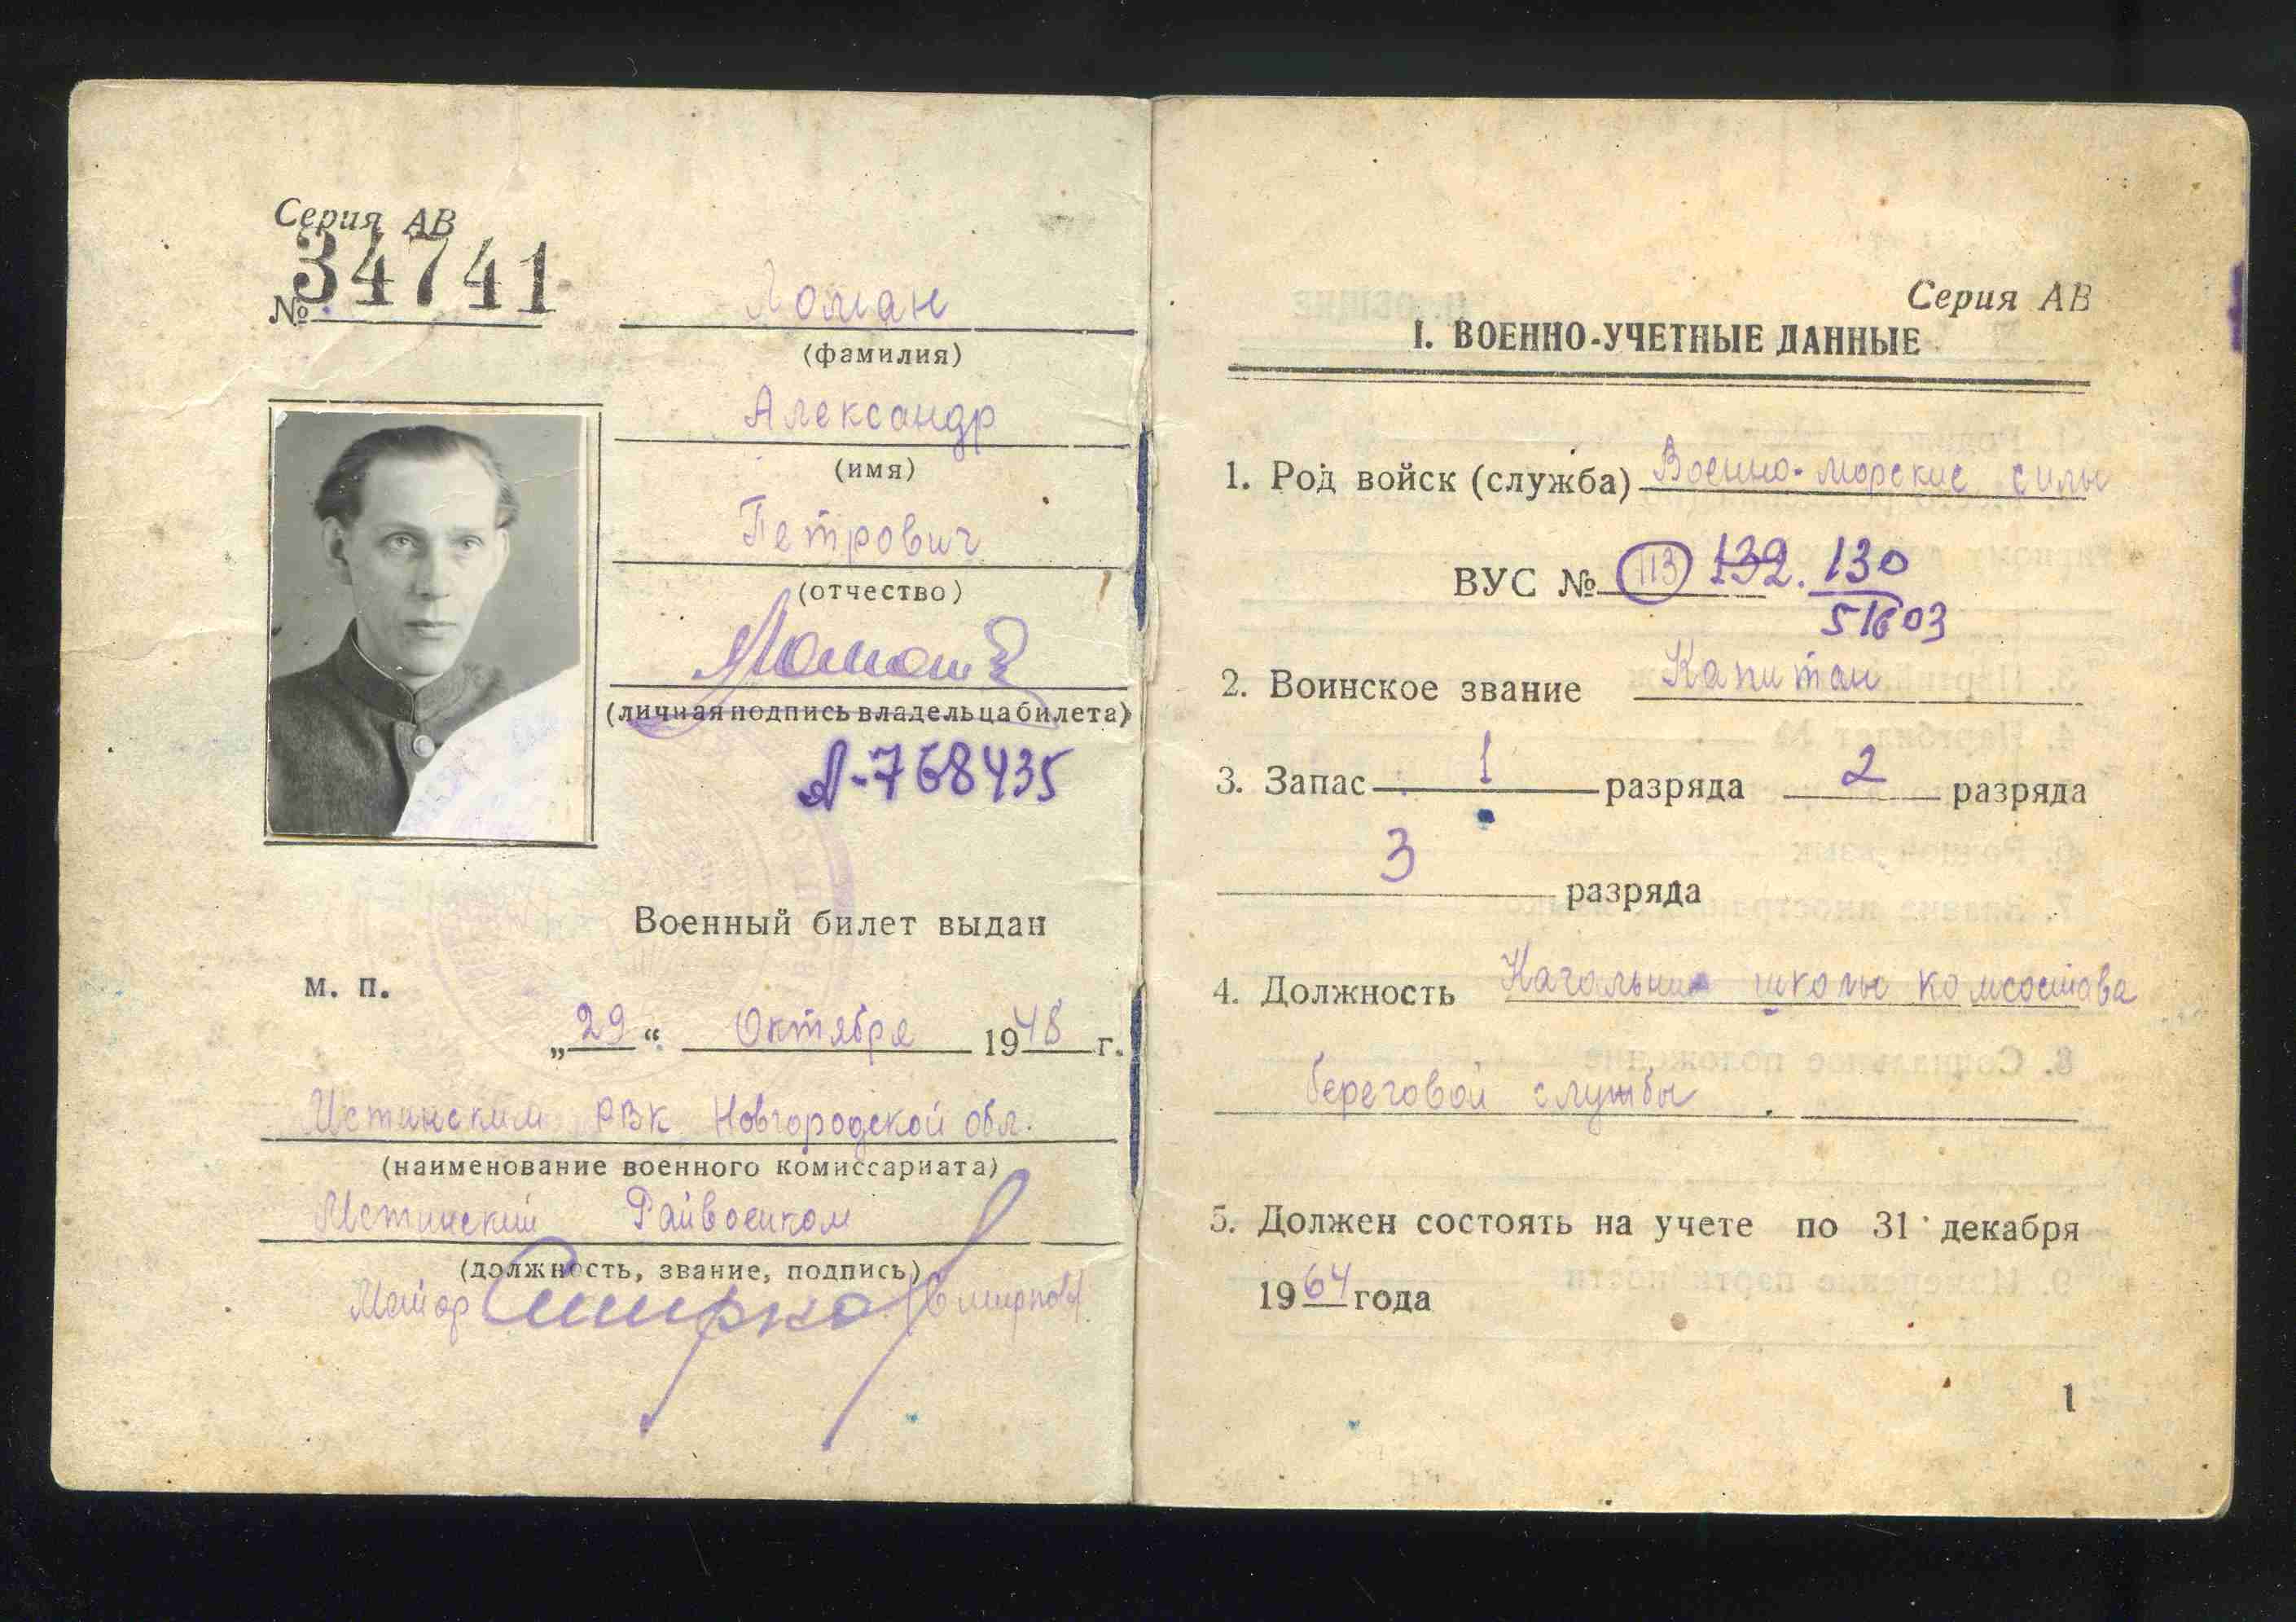 Серия АВ
№ 34741
Ломан
(фамилия)
Александр
(имя)
Петрович
(отчество)
(личная подпись владельца билета)
А-768435
Военный билет выдан
М. П.
„29“ Октября 1948 г.
Мстинским РВК Новгородской обл.
(наименование военного комиссариата)
Мстинский Райвоенком
(должность, звание, подпись)
Майор Смирнов (Смирнов)
Серия АВ
I. ВОЕННО-УЧЕТНЫЕ ДАННЫЕ
1. Род войск (служба) Военно-морские силы
ВУС № 113 132. 130
51603
2. Воинское звание Капитан
3. Запас 1 разряда 2 разряда
3 разряда
4. Должность Начальник школы комсостава
береговой службы
5. Должен состоять на учете по 31 декабря
1964 года
1